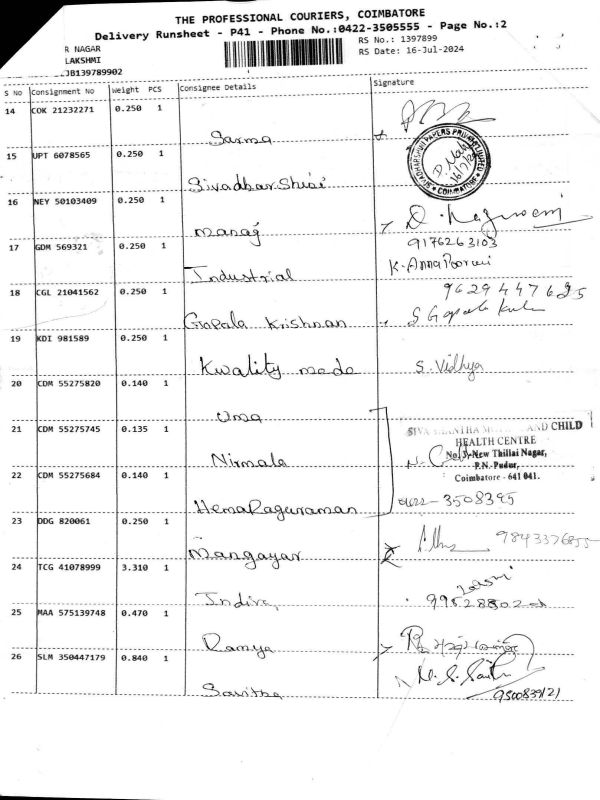 THE PROFESSIONAL COURIERS, COIMBATORE
Delivery Runsheet - P41 - Phone No.:0422-3505555 - Page No.:2
R NAGAR
RS No.: 1397899
LAKSHMI
RS Date: 16-Jul-2024
JB139789902
S No Consignment No Weight PCS Consignee Details Signature
14 COK 21232271 0.250 1
Sarma
15 UPT 6078565 0.250 1
Sivadharshini
16 NEY 50103409 0.250 1
Manag
17 GDM 569321 0.250 1
9176263103
Industrial
K. Anna Poorani
18 CGL 21041562 0.250 1
9629447625
Gopala Krishnan
S Gopala
19 KDI 981589 0.250 1
Kwality mode
S. Vidhya
20 CDM 55275820 0.140 1
Uma
21 CDM 55275745 0.135 1
AND CHILD
HEALTH CENTRE
Nirmala
No. 3, New Thillai Nagar,
P.N. Pudur,
22 CDM 55275684 0.140 1
Coimbatore - 641 041.
HemaRaguraman
0422-3508395
23 DDG 820061 0.250 1
9843376855
Mangayar
24 TCG 41078999 3.310 1
Indira,
25 MAA 575139748 0.470 1
Ramya
26 SLM 350447179 0.840 1
Savitha